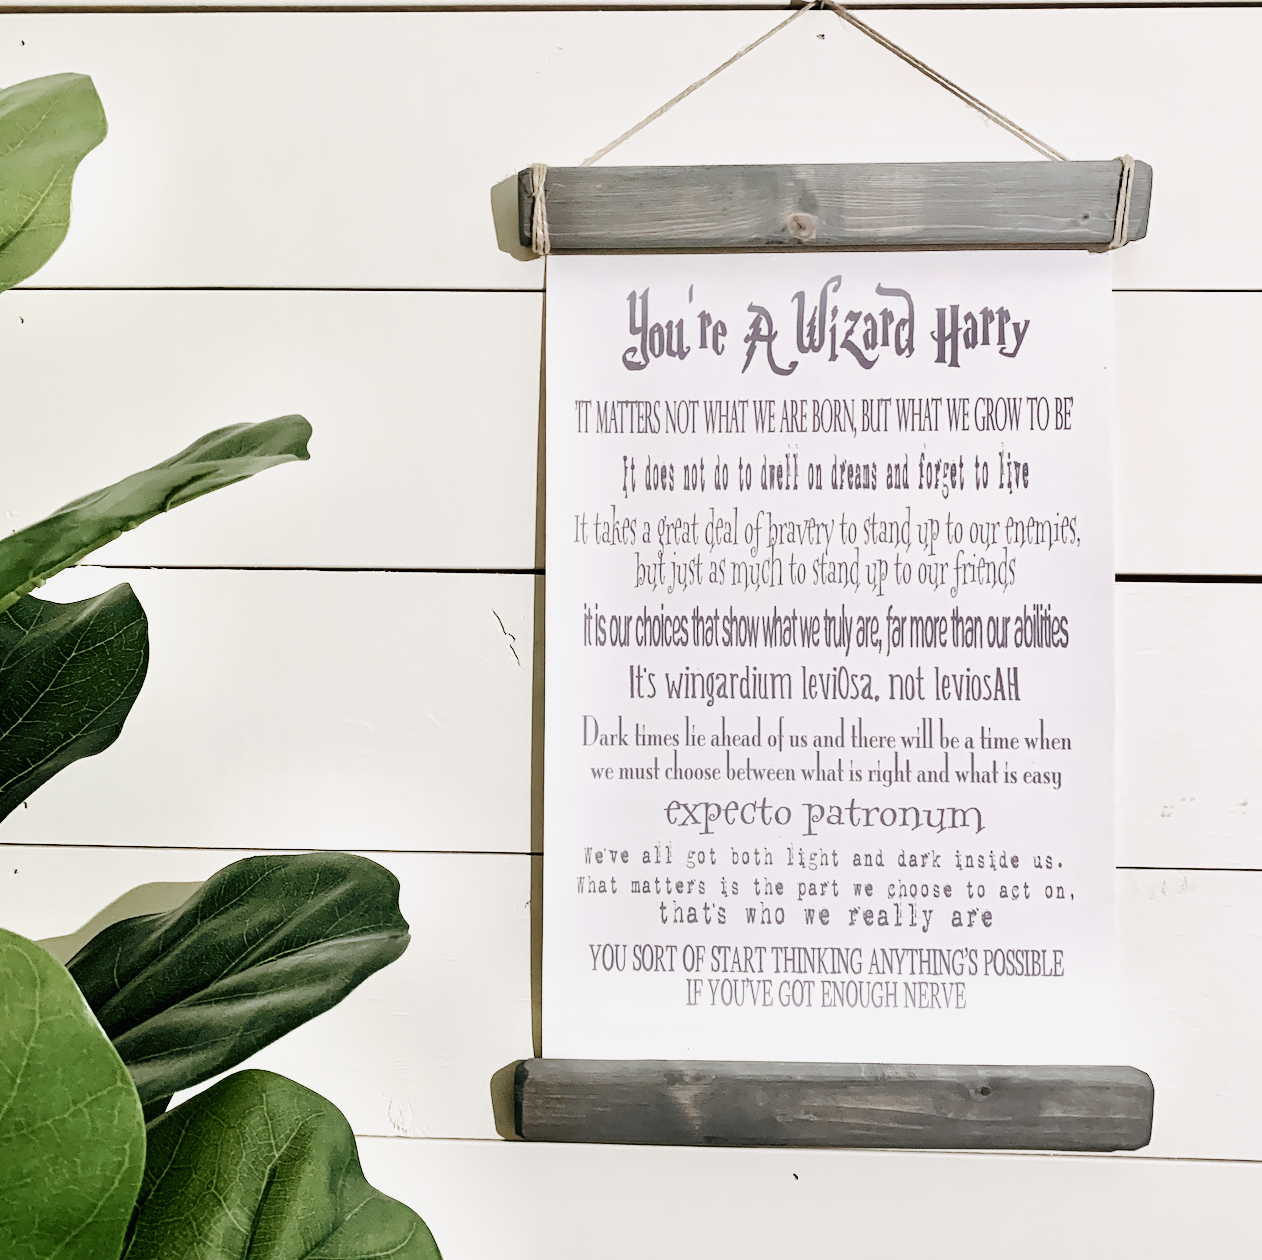 You're A Wizard Harry
'IT MATTERS NOT WHAT WE ARE BORN, BUT WHAT WE GROW TO BE'
It does not do to dwell on dreams and forget to live
It takes a great deal of bravery to stand up to our enemies,
but just as much to stand up to our friends
it is our choices that show what we truly are, far more than our abilities
It's wingardium leviOsa, not leviosAH
Dark times lie ahead of us and there will be a time when
we must choose between what is right and what is easy
expecto patronum
We've all got both light and dark inside us.
What matters is the part we choose to act on,
that's who we really are
YOU SORT OF START THINKING ANYTHING'S POSSIBLE
IF YOU'VE GOT ENOUGH NERVE